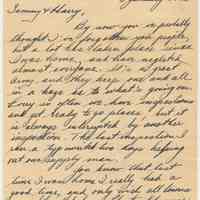 Jimmy & Harry,
By now you've probably
thought I've forgotten you people,
but a lot has taken place since
I was home, and have neglected
almost everyone. It's a great
Army, and they keep one and all
in a daze as to what's going on.
Every so often we have inspections
and get ready to go places but it
is always interrupted by another
inspection. The last inspection I
saw a top world two days helping
out our supply men.
You know that last
time I was home I really had a
good time, and only wish all towns